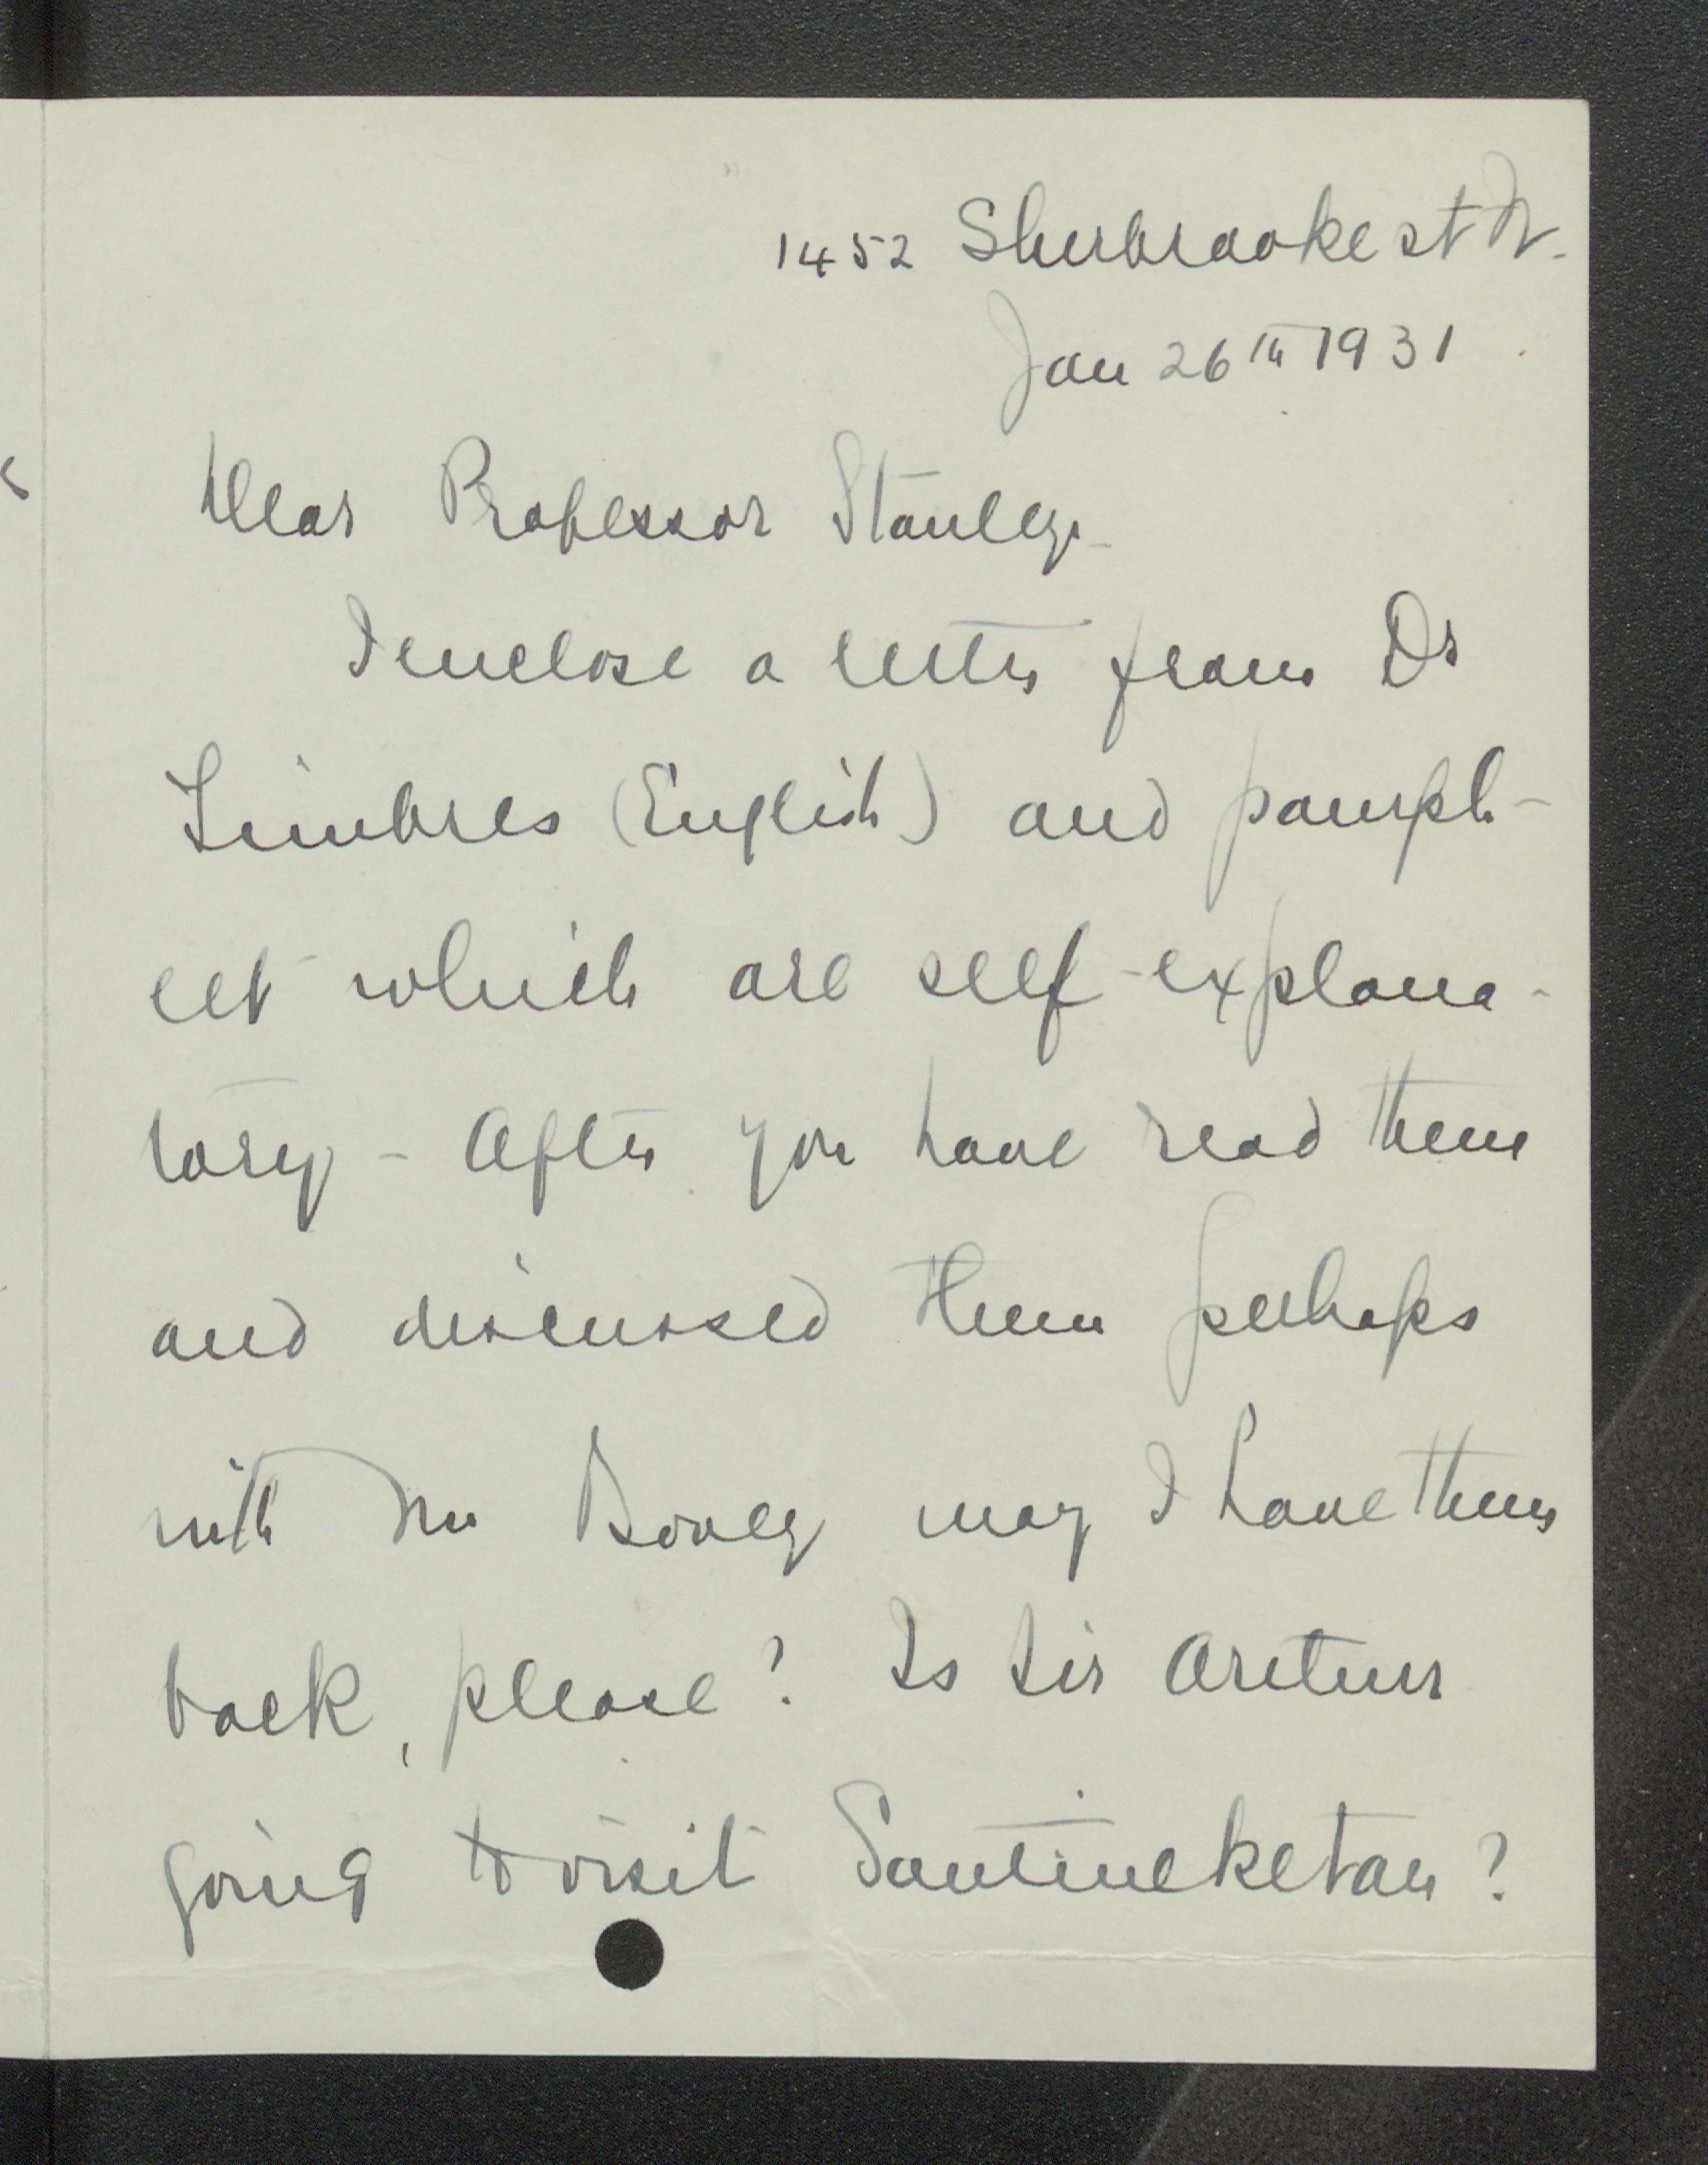 1452 Sherbrooke st W.
Jan 26th 1931
Dear Professor Stanley -
I enclose a letter from Dr
Timbres (English) and pamph-
let which are self-explana-
tory - After you have read them
and discussed them perhaps
with Mr Bovey may I have them
back, please? Is Sir Arthur
going to visit Santineketan?